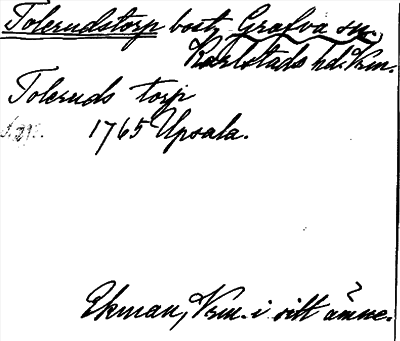 Tolerudstorp bost, Grafva sn.,
Karlstads hd. Vrm.
Toleruds torp
1765 Upsala.
Ekman, Vrm. i sitt ämne.